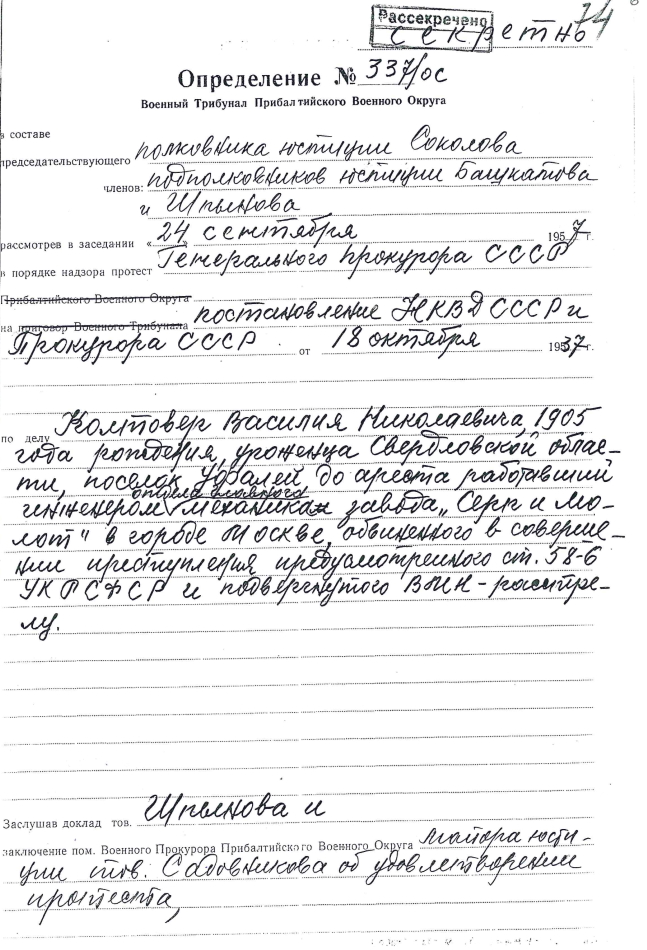 74
Рассекречено
секретно
Определение № 337/ос
Военный Трибунал Прибалтийского Военного Округа
в составе
председательствующего полковника юстиции Соколова
членов: подполковников юстиции Башкатова
и Шпынова
рассмотрев в заседании «24 сентября 1957 г.
в порядке надзора протест Генерального прокурора СССР
Прибалтийского Военного Округа
на приговор Военного Трибунала постановление НКВД СССР и
Прокурора СССР от 18 октября 1937 г.
по делу Колтовер Василия Николаевича, 1905
года рождения, уроженца Свердловской облас-
ти, поселок Уфалей, до ареста работавший
отдела главного
инженером механика завода „Серп и Мо-
лот" в городе Москве, обвиненного в соверше-
нии преступления, предусмотренного ст. 58-6
УК РСФСР и подвергнутого ВМН - расстре-
лу.
Заслушав доклад тов. Шпынова и
заключение пом. Военного Прокурора Прибалтийского Военного Округа майора юсти-
ции тов. Садовникова об удовлетворении
протеста,